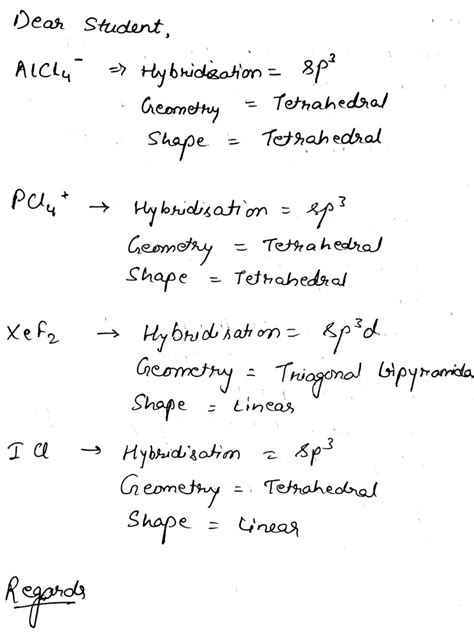 Dear Student,
AlCl₄⁻ ⇒ Hybridisation = sp³
Geometry = Tetrahedral
Shape = Tetrahedral
PCl₄⁺ → Hybridisation = sp³
Geometry = Tetrahedral
Shape = Tetrahedral
XeF₂ → Hybridisation = sp³d
Geometry = Triagonal bipyramida
Shape = Linear
ICl → Hybridisation = sp³
Geometry = Tetrahedral
Shape = Linear
Regards